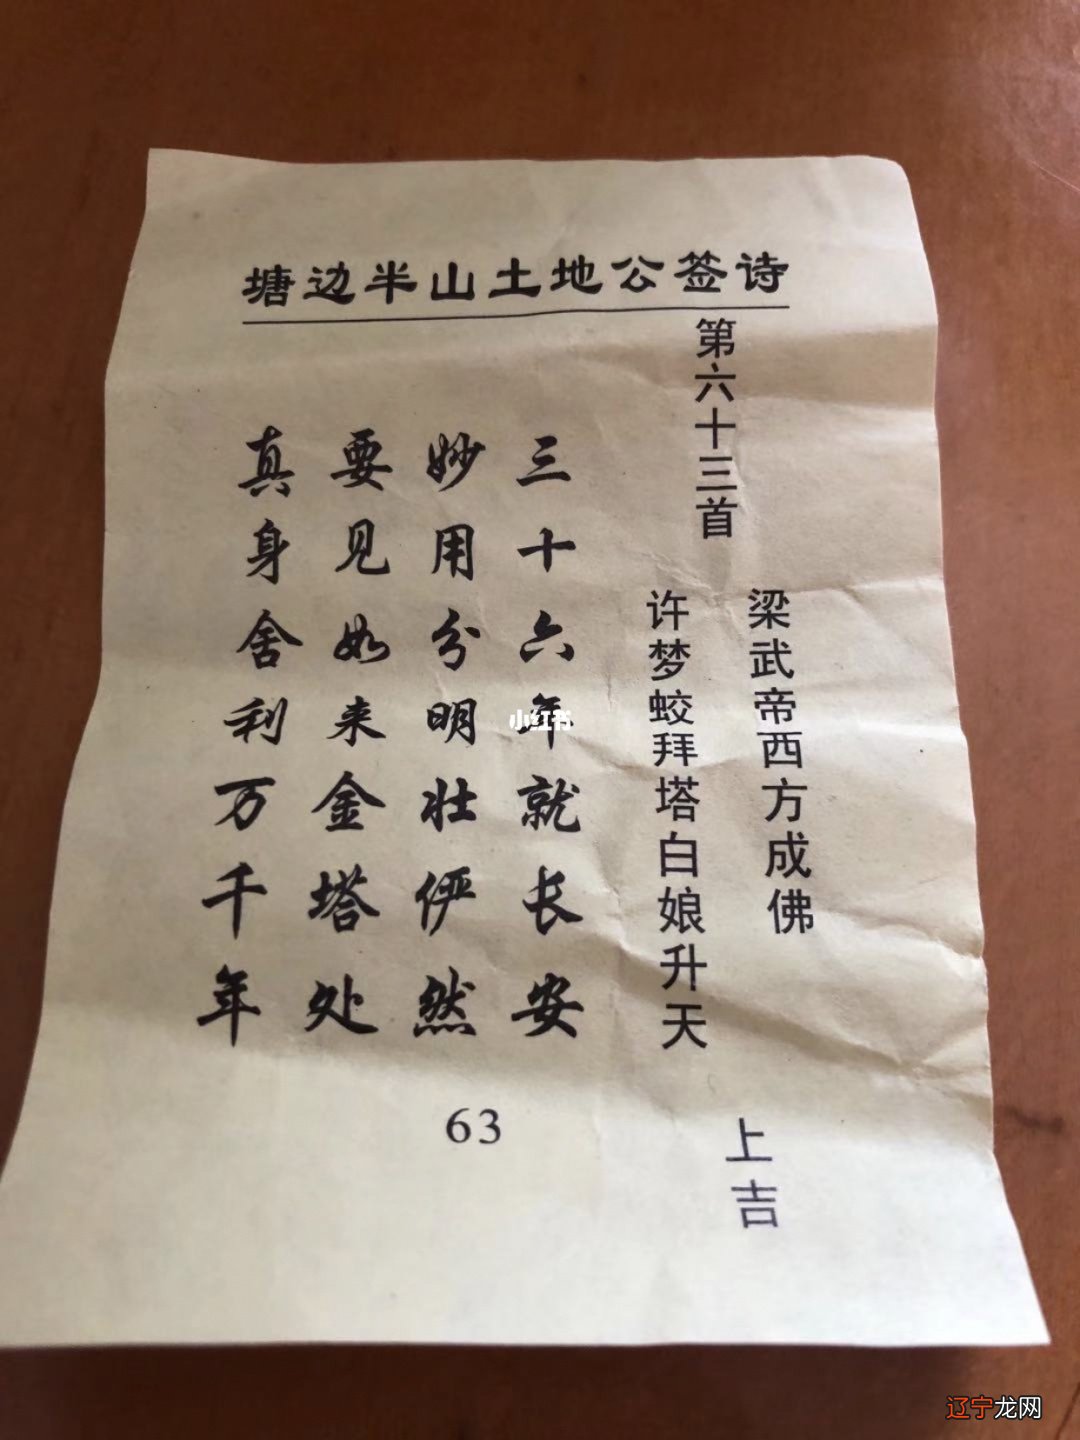 塘边半山土地公签诗
第六十三首
梁武帝西方成佛
许梦蛟拜塔白娘升天
上吉
三十六年就长安
妙用分明壮俨然
要见如来金塔处
真身舍利万千年
63
小红书
辽宁龙网